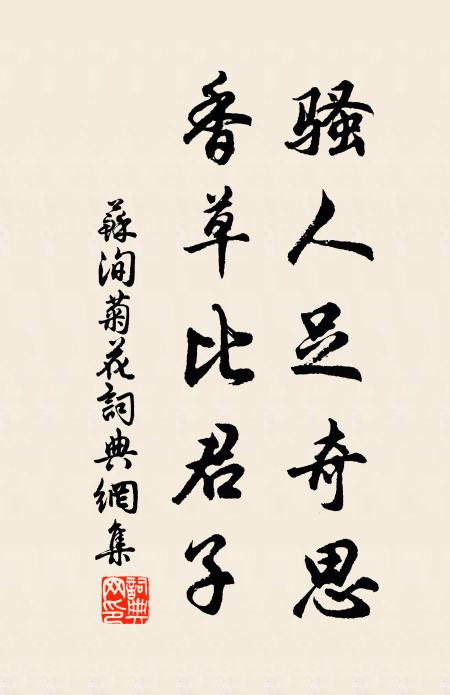 騷人足奇思
香草比君子
蘇洵菊花詞典網集
詞典
网印